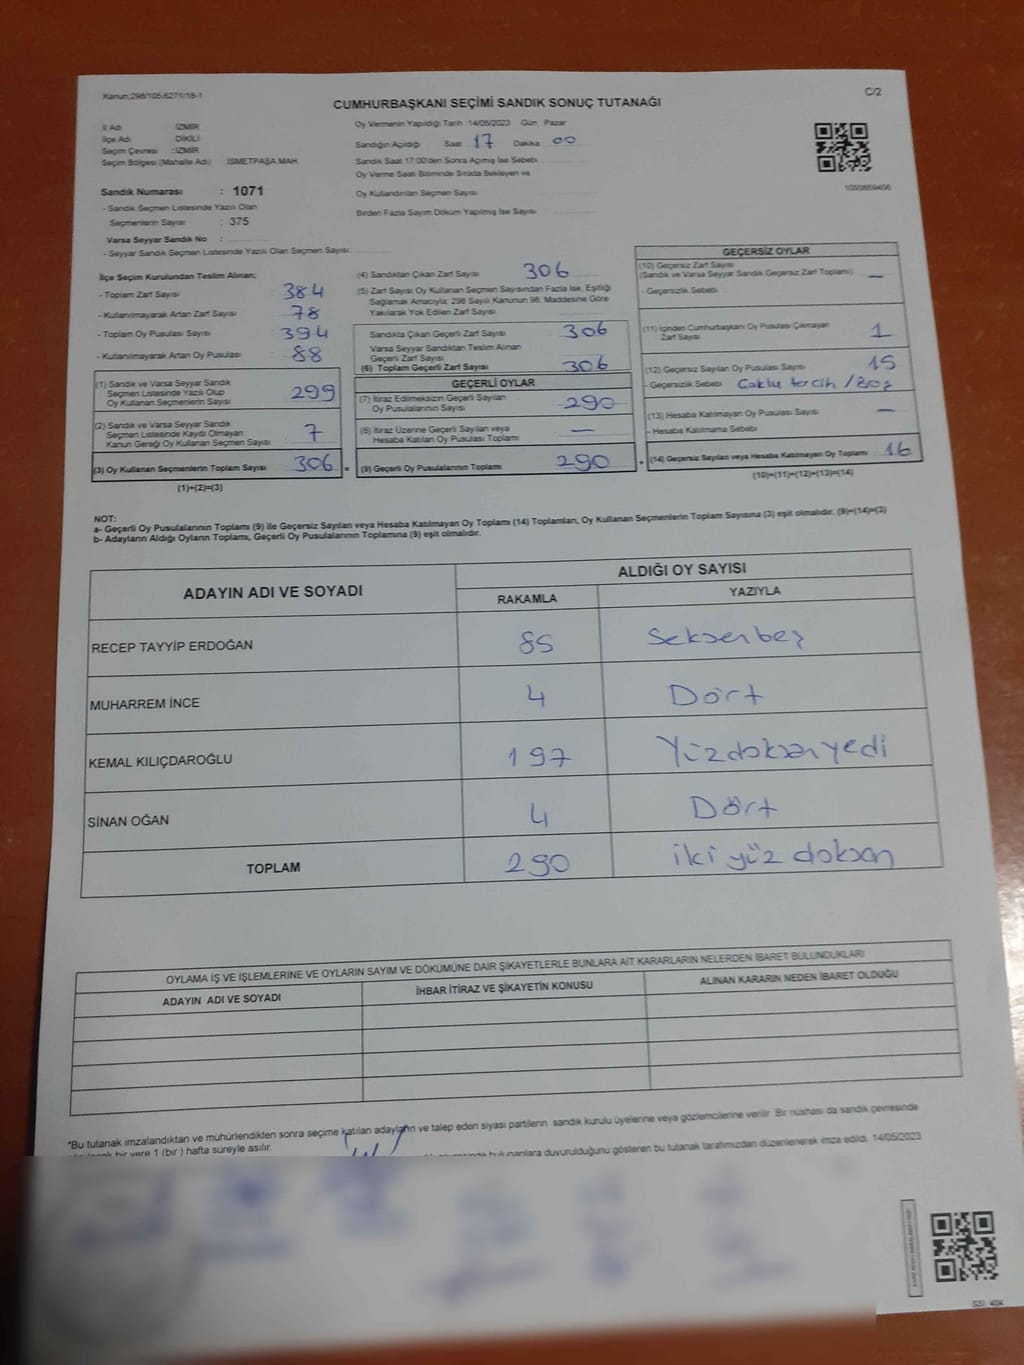 Kanun;298/105;6271/18-1
CUMHURBAŞKANI SEÇİMİ SANDIK SONUÇ TUTANAĞI
C/2
İl Adı İZMİR
İlçe Adı DİKİLİ
Seçim Çevresi : İZMİR
Seçim Bölgesi (Mahalle Adı) İSMETPAŞA MAH.
Oy Vermenin Yapıldığı Tarih 14/05/2023 Gün Pazar
Sandığın Açıldığı Saat 17 Dakika 00
Sandık Saat 17:00'den Sonra Açımış İse Sebebi
Oy Verme Saati Bitiminde Sırada Bekleyen ve
Oy Kullandırılan Seçmen Sayısı
Birden Fazla Sayım Döküm Yapılmış İse Sayısı
Sandık Numarası : 1071
- Sandık Seçmen Listesinde Yazılı Olan
Seçmenlerin Sayısı : 375
Varsa Seyyar Sandık No :
- Seyyar Sandık Seçmen Listesinde Yazılı Olan Seçmen Sayısı:
İlçe Seçim Kurulundan Teslim Alınan;
- Toplam Zarf Sayısı 384
- Kullanılmayarak Artan Zarf Sayısı 78
- Toplam Oy Pusulası Sayısı 394
- Kullanılmayarak Artan Oy Pusulası 88
(1) Sandık ve Varsa Seyyar Sandık
Seçmen Listesinde Yazılı Olup
Oy Kullanan Seçmenlerin Sayısı 299
(2) Sandık ve Varsa Seyyar Sandık
Seçmen Listesinde Kaydı Olmayan
Kanun Gereği Oy Kullanan Seçmen Sayısı 7
(3) Oy Kullanan Seçmenlerin Toplam Sayısı 306 =
(1)+(2)=(3)
(4) Sandıktan Çıkan Zarf Sayısı 306
(5) Zarf Sayısı Oy Kullanan Seçmen Sayısından Fazla İse, Eşitliği
Sağlamak Amacıyla; 298 Sayılı Kanunun 98. Maddesine Göre
Yakılarak Yok Edilen Zarf Sayısı
Sandıkta Çıkan Geçerli Zarf Sayısı 306
Varsa Seyyar Sandıktan Teslim Alınan
Geçerli Zarf Sayısı
(6) Toplam Geçerli Zarf Sayısı 306
GEÇERLİ OYLAR
(7) İtiraz Edilmeksizin Geçerli Sayılan
Oy Pusulalarının Sayısı 290
(8) İtiraz Üzerine Geçerli Sayılan veya
Hesaba Katılan Oy Pusulası Toplamı —
(9) Geçerli Oy Pusulalarının Toplamı 290 +
GEÇERSİZ OYLAR
(10) Geçersiz Zarf Sayısı
(Sandık ve Varsa Seyyar Sandık Geçersiz Zarf Toplamı) —
- Geçersizlik Sebebi
(11) İçinden Cumhurbaşkanı Oy Pusulası Çıkmayan
Zarf Sayısı 1
(12) Geçersiz Sayılan Oy Pusulası Sayısı 15
- Geçersizlik Sebebi Çoklu tercih / Boş
(13) Hesaba Katılmayan Oy Pusulası Sayısı —
- Hesaba Katılmama Sebebi
(14) Geçersiz Sayılan veya Hesaba Katılmayan Oy Toplamı 16
(10)+(11)+(12)+(13)=(14)
NOT:
a- Geçerli Oy Pusulalarının Toplamı (9) ile Geçersiz Sayılan veya Hesaba Katılmayan Oy Toplamı (14) Toplamları, Oy Kullanan Seçmenlerin Toplam Sayısına (3) eşit olmalıdır. (9)+(14)=(3)
b- Adayların Aldığı Oyların Toplamı, Geçerli Oy Pusulalarının Toplamına (9) eşit olmalıdır.
ADAYIN ADI VE SOYADI ALDIĞI OY SAYISI
RAKAMLA YAZIYLA
RECEP TAYYİP ERDOĞAN 85 Seksenbeş
MUHARREM İNCE 4 Dört
KEMAL KILIÇDAROĞLU 197 Yüzdoksanyedi
SİNAN OĞAN 4 Dört
TOPLAM 290 iki yüz doksan
OYLAMA İŞ VE İŞLEMLERİNE VE OYLARIN SAYIM VE DÖKÜMÜNE DAİR ŞİKAYETLERLE BUNLARA AİT KARARLARIN NELERDEN İBARET BULUNDUKLARI
ADAYIN ADI VE SOYADI İHBAR İTİRAZ VE ŞİKAYETİN KONUSU ALINAN KARARIN NEDEN İBARET OLDUĞU
*Bu tutanak imzalandıktan ve mühürlendikten sonra seçime katılan adayların ve talep eden siyasi partilerin sandık kurulu üyelerine veya gözlemcilerine verilir. Bir nüshası da sandık çevresinde
bir yere 1 (bir) hafta süreyle asılır.
bulunanlara duyurulduğunu gösteren bu tutanak tarafımızdan düzenlenerek imza edildi. 14/05/2023